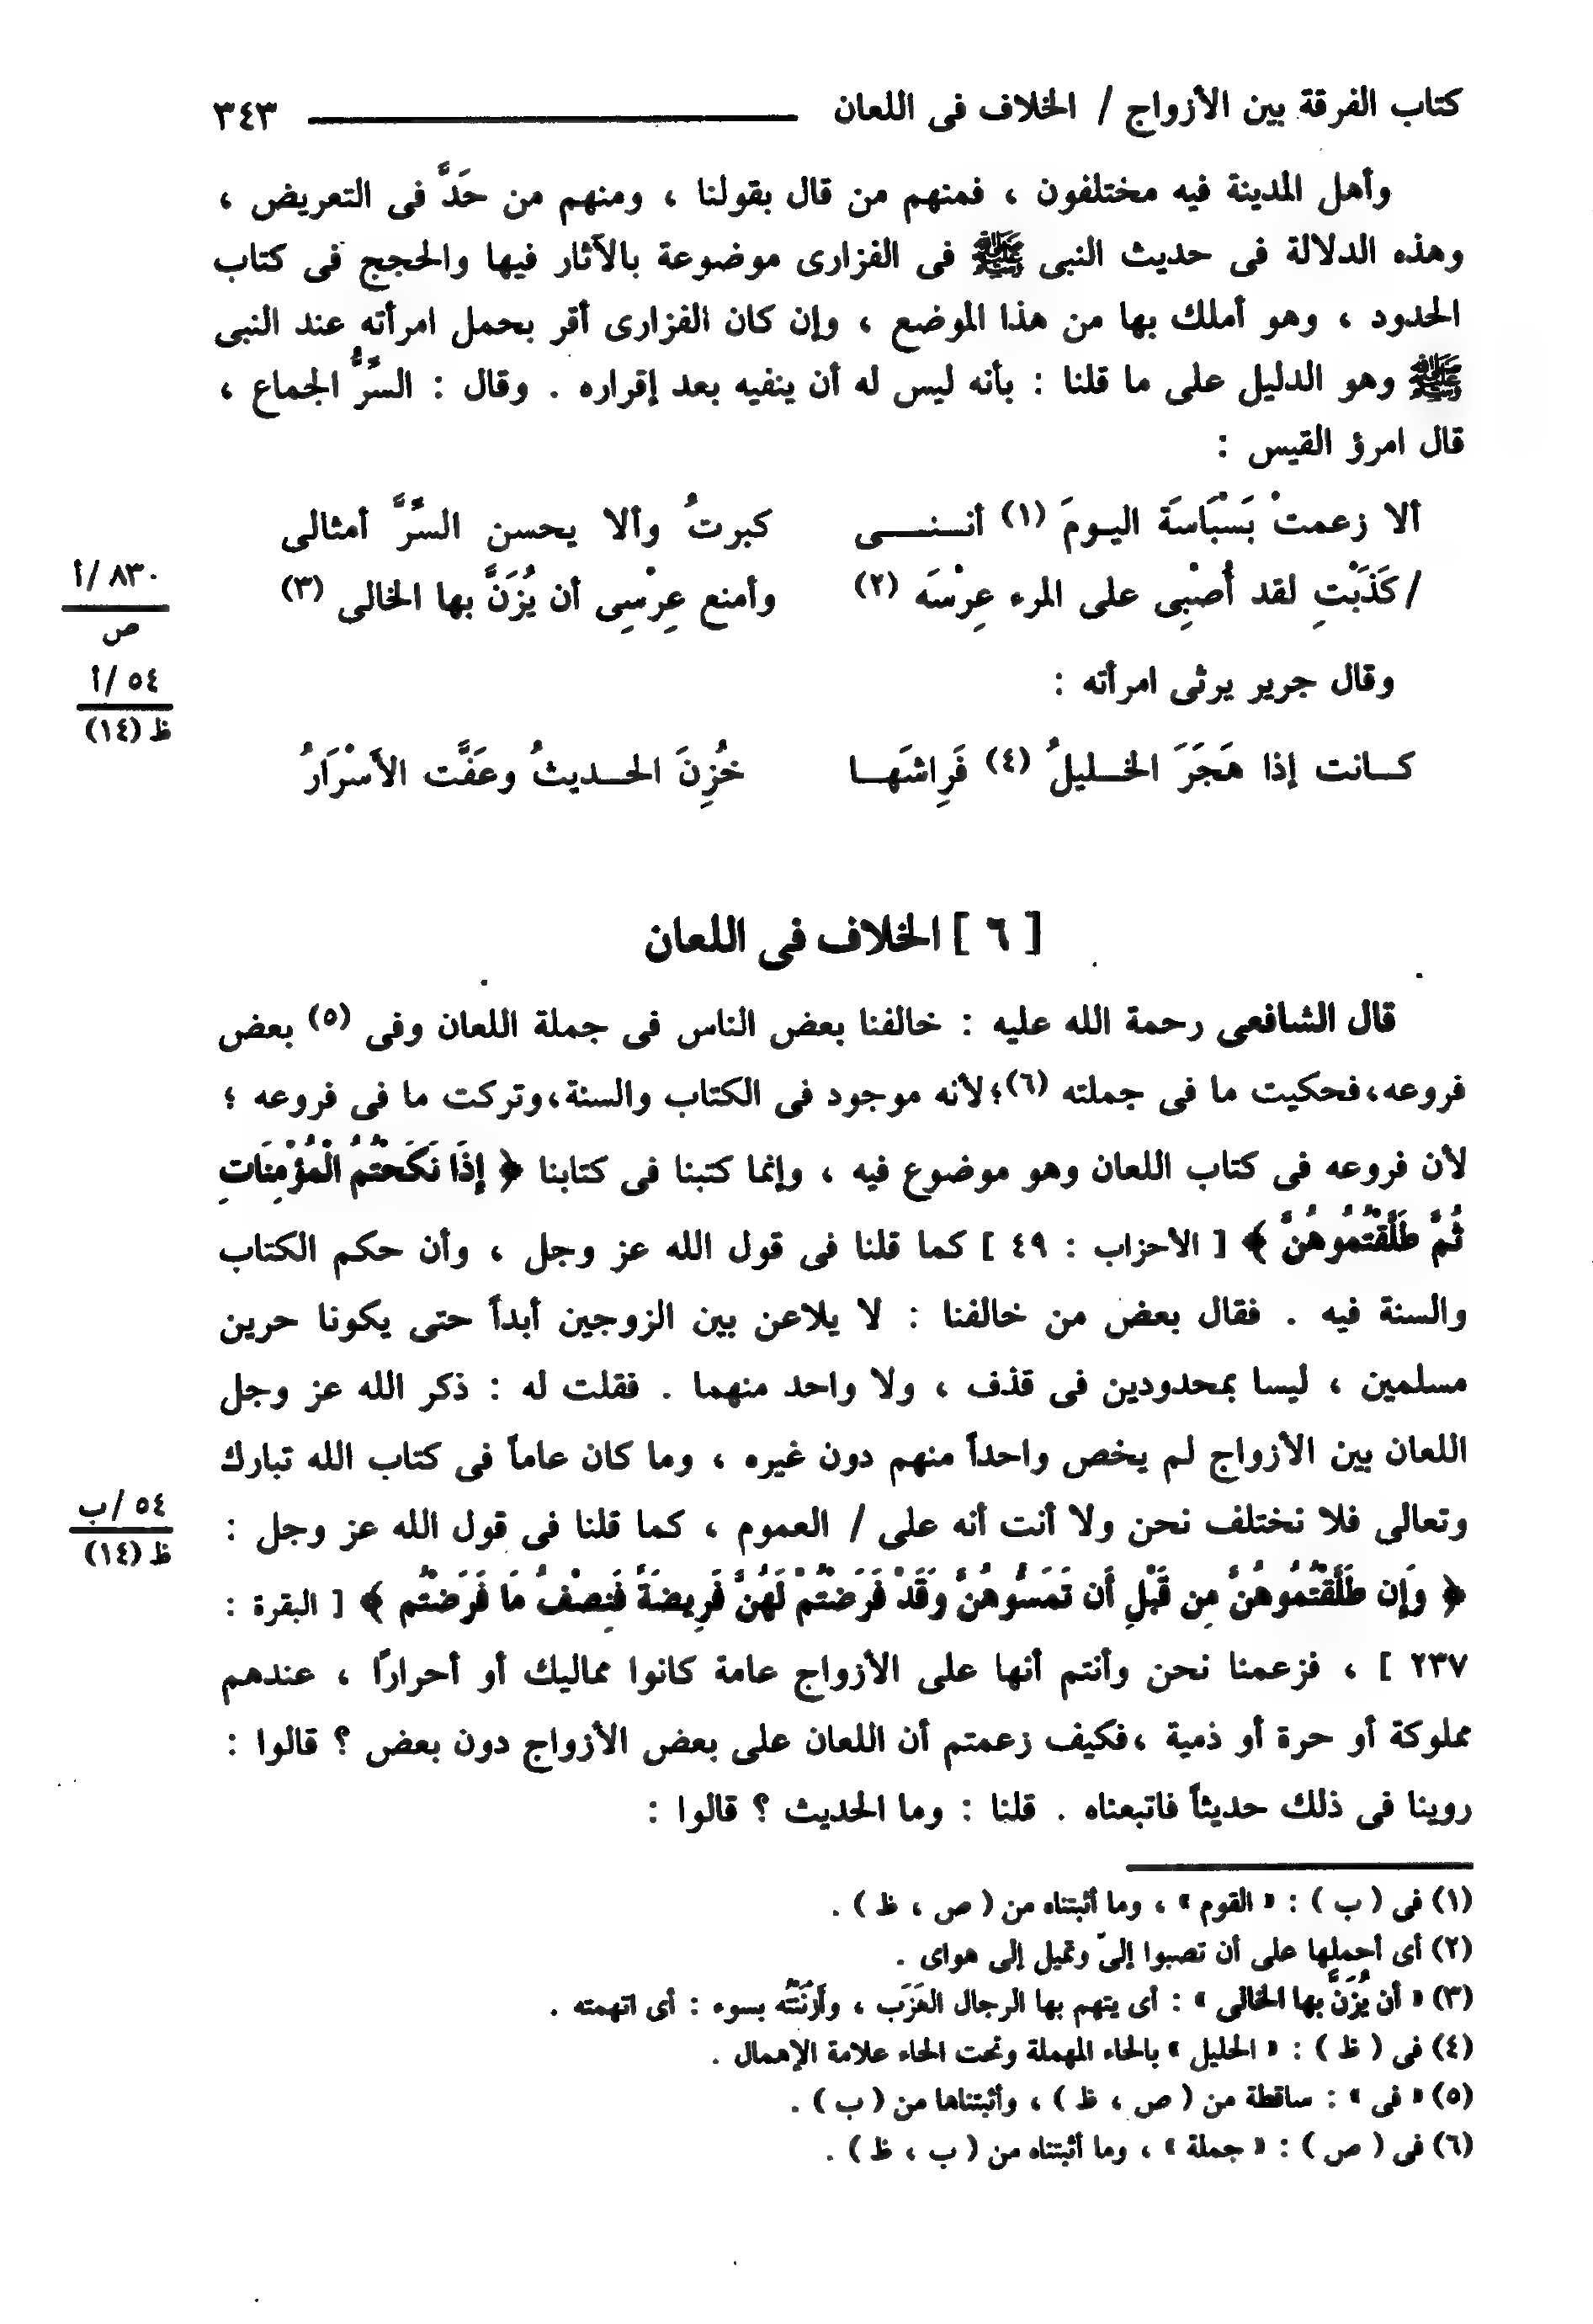 كتاب الفرقة بين الأزواج / الخلاف فى اللعان ٣٤٣
وأهل المدينة فيه مختلفون ، فمنهم من قال بقولنا ، ومنهم من حَدَّ فى التعريض ،
وهذه الدلالة فى حديث النبى ﷺ فى الفزارى موضوعة بالآثار فيها والحجج فى كتاب
الحدود ، وهو أملك بها من هذا الموضع ، وإن كان الفزارى أقر بحمل امرأته عند النبى
ﷺ وهو الدليل على ما قلنا : بأنه ليس له أن ينفيه بعد إقراره . وقال : السِّرُّ الجماع ،
قال امرؤ القيس :
ألا زعمتْ بَسْبَاسَة اليـومَ (١) أنـنـــى كبرتُ وألا يحسن السِّرَّ أمثالى
/ كَذَبْتِ لقد أُصْبِى على المرء عِرْسَه (٢) وأمنع عِرْسِى أن يُزَنَّ بها الخالى (٣)
٨٣٠ /أ
ص
٥٤ /أ
ظ (١٤)
وقال جرير يرثى امرأته :
كـانت إذا هَجَرَ الخـليلُ (٤) فَرِاشَهـا خُزِنَ الحـديثُ وعَفَّت الأَسْرَارُ
[ ٦ ] الخلاف فى اللعان
قال الشافعى رحمة الله عليه : خالفنا بعض الناس فى جملة اللعان وفى (٥) بعض
فروعه،فحكيت ما فى جملته (٦)؛لأنه موجود فى الكتاب والسنة،وتركت ما فى فروعه ؛
لأن فروعه فى كتاب اللعان وهو موضوع فيه ، وإنما كتبنا فى كتابنا ﴿ إِذَا نَكَحْتُمُ الْمُؤْمِنَاتِ
ثُمَّ طَلَّقْتُمُوهُنَّ ﴾ [ الأحزاب : ٤٩ ] كما قلنا فى قول الله عز وجل ، وأن حكم الكتاب
والسنة فيه . فقال بعض من خالفنا : لا يلاعن بين الزوجين أبداً حتى يكونا حرين
مسلمين ، ليسا بمحدودين فى قذف ، ولا واحد منهما . فقلت له : ذكر الله عز وجل
اللعان بين الأزواج لم يخص واحداً منهم دون غيره ، وما كان عاماً فى كتاب الله تبارك
وتعالى فلا نختلف نحن ولا أنت أنه على / العموم ، كما قلنا فى قول الله عز وجل :
٥٤ /ب
ظ (١٤)
﴿ وَإِن طَلَّقْتُمُوهُنَّ مِن قَبْلِ أَن تَمَسُّوهُنَّ وَقَدْ فَرَضْتُمْ لَهُنَّ فَرِيضَةً فَنِصْفُ مَا فَرَضْتُم ﴾ [ البقرة :
٢٣٧ ] ، فزعمنا نحن وأنتم أنها على الأزواج عامة كانوا مماليك أو أحرارًا ، عندهم
مملوكة أو حرة أو ذمية ،فكيف زعمتم أن اللعان على بعض الأزواج دون بعض ؟ قالوا :
روينا فى ذلك حديثاً فاتبعناه . قلنا : وما الحديث ؟ قالوا :
(١) فى ( ب ) : « القوم » ، وما أثبتناه من ( ص ، ظ ) .
(٢) أى أحملها على أن تصبوا إلىّ وتميل إلى هواى .
(٣) « أن يُزَنَّ بها الخالى » : أى يتهم بها الرجال العَزَب ، وأَزْنَنْتُه بسوء : أى اتهمته .
(٤) فى ( ظ ) : « الحليل » بالحاء المهملة وتحت الحاء علامة الإهمال .
(٥) « فى » : ساقطة من ( ص ، ظ ) ، وأثبتناها من ( ب ) .
(٦) فى ( ص ) : « جملة » ، وما أثبتناه من ( ب ، ظ ) .